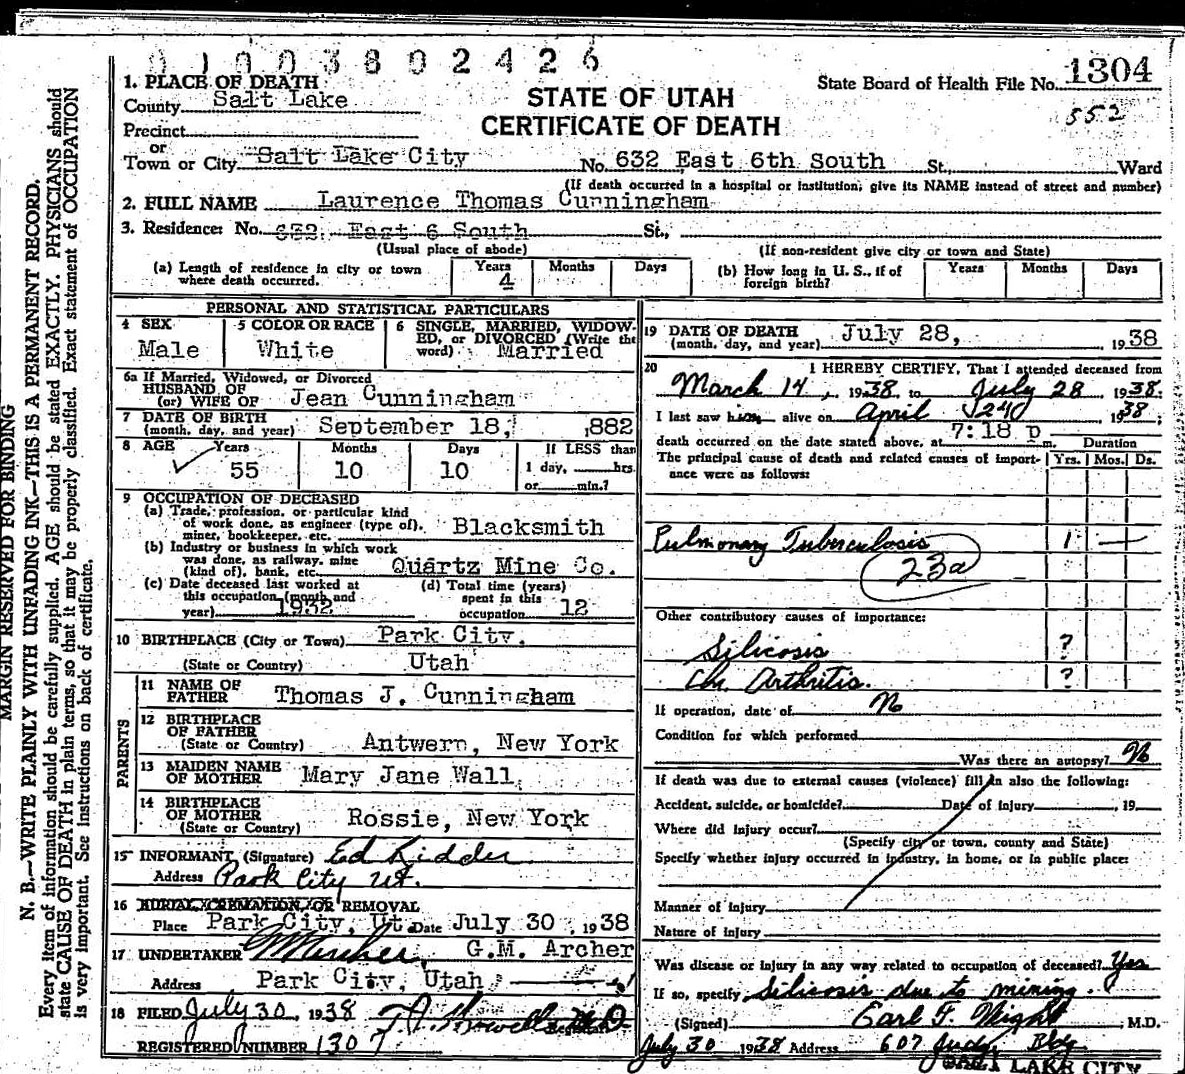 0 1 0 0 3 8 0 2 4 2 6
1. PLACE OF DEATH
County Salt Lake
STATE OF UTAH
CERTIFICATE OF DEATH
State Board of Health File No. 1304
552
Precinct
or
Town or City Salt Lake City No. 632 East 6th South St., Ward
(If death occurred in a hospital or institution, give its NAME instead of street and number)
2. FULL NAME Laurence Thomas Cunningham
3. Residence: No. 632 East 6 South St.,
(Usual place of abode) (If non-resident give city or town and State)
(a) Length of residence in city or town where death occurred. Years 4 Months Days
(b) How long in U. S., if of foreign birth? Years Months Days
PERSONAL AND STATISTICAL PARTICULARS
4 SEX Male
5 COLOR OR RACE White
6 SINGLE, MARRIED, WIDOWED, or DIVORCED (Write the word) Married
6a If Married, Widowed, or Divorced
HUSBAND OF
(or) WIFE OF Jean Cunningham
7 DATE OF BIRTH
(month, day, and year) September 18, 1882
8 AGE Years 55 Months 10 Days 10
If LESS than
1 day, hrs.
or min.?
9 OCCUPATION OF DECEASED
(a) Trade, profession, or particular kind
of work done, as engineer (type of),
miner, bookkeeper, etc. Blacksmith
(b) Industry or business in which work
was done, as railway, mine
(kind of), bank, etc. Quartz Mine Co.
(c) Date deceased last worked at
this occupation (month and
year) 1932
(d) Total time (years)
spent in this
occupation 12
10 BIRTHPLACE (City or Town) Park City,
(State or Country) Utah
PARENTS
11 NAME OF
FATHER Thomas J. Cunningham
12 BIRTHPLACE
OF FATHER
(State or Country) Antwerp, New York
13 MAIDEN NAME
OF MOTHER Mary Jane Wall
14 BIRTHPLACE
OF MOTHER
(State or Country) Rossie, New York
15 INFORMANT (Signature) Ed Kidder
Address Park City Ut.
16 BURIAL, CREMATION, OR REMOVAL
Place Park City, Ut. Date July 30, 1938
17 UNDERTAKER G.M. Archer
Address Park City, Utah
18 FILED July 30, 1938
REGISTERED NUMBER 1307
19 DATE OF DEATH
(month, day, and year) July 28, 1938
20 I HEREBY CERTIFY, That I attended deceased from
March 14, 1938 to July 28 1938.
I last saw him alive on April 24 1938,
death occurred on the date stated above, at 7:18 p m.
Duration
The principal cause of death and related causes of importance were as follows: Yrs. Mos. Ds.
Pulmonary Tuberculosis 1 —
23a
Other contributory causes of importance:
Silicosis ?
Chr. Arthritis. ?
If operation, date of No
Condition for which performed
Was there an autopsy? No
If death was due to external causes (violence) fill in also the following:
Accident, suicide, or homicide? Date of injury , 19
Where did injury occur?
(Specify city or town, county and State)
Specify whether injury occurred in industry, in home, or in public place:
Manner of injury
Nature of injury
Was disease or injury in any way related to occupation of deceased? Yes
If so, specify Silicosis due to mining.
(Signed) Earl F. Wight, M.D.
July 30 1938 Address 607 Judge Bldg
SALT LAKE CITY
MARGIN RESERVED FOR BINDING
N. B.—WRITE PLAINLY WITH UNFADING INK—THIS IS A PERMANENT RECORD.
Every item of information should be carefully supplied. AGE should be stated EXACTLY. PHYSICIANS should
state CAUSE OF DEATH in plain terms, so that it may be properly classified. Exact statement of OCCUPATION
is very important. See instructions on back of certificate.